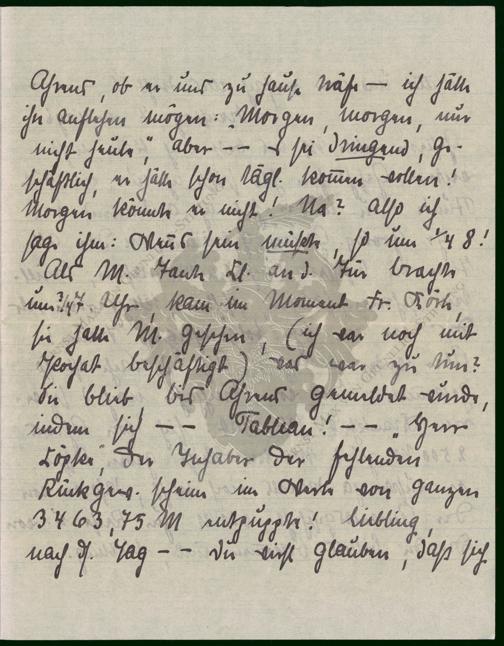 Ahrens, ob er uns zu Hause träfe — ich hätte
ihn anflehen mögen: "Morgen, morgen, nur
nicht heute", aber — — es sei dringend, ge-
schäftlich, er hätte schon tägl. kommen wollen!
Morgen könnte er nicht! Na? Also ich
sage ihm: Wenns sein müßte, so um 1/4 8!
Als M. Tante El. an d. Tür brachte
um 3/4 7 Uhr, kam im Moment Fr. Körk,
sie hatte M. gesehen, (ich war noch mit
beschäftigt) was war zu tun?
Sie blieb bis Ahrens gemeldet wurde,
indem sich — — Tableau! — — "Herr
Töpke", der Inhaber der fehlenden
Rückgew. scheine im Werte von ganzen
3463,75 M entpuppte! Liebling,
nach d. Tag — — Du wirst glauben, daß sich